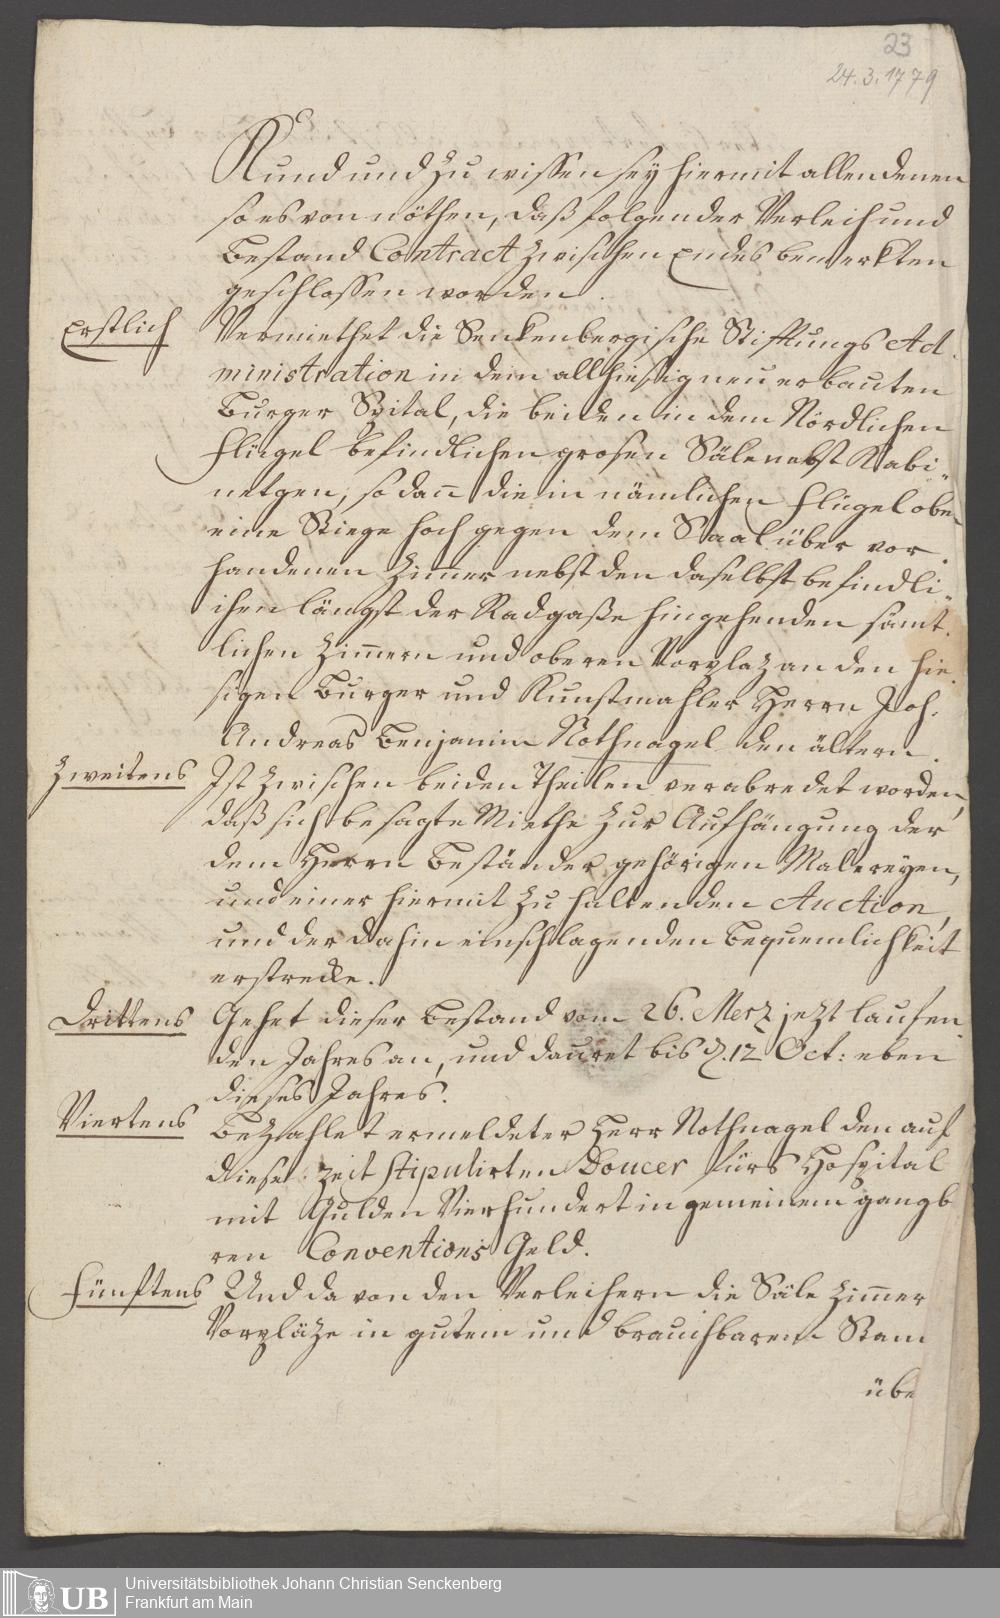 23
24.3.1779
Kund und zu wissen sey hiermit allen denen
so es von nöthen, daß folgender Verleih und
Bestand Contract zwischen Endes bemerkten
geschlossen worden.
Erstlich
Vermiethet die Senckenbergische Stifftungs Ad-
ministration in dem allhiesig neu erbauten
Burger Spital, die beiden in dem Nördlichen
Flügel befindlichen grosen Säle nebst Kabi-
netgen, so dann die in nämlichen Flügel oben
eine Stiege hoch gegen dem Saal über vor-
handenen Zimer nebst den daselbst befindli-
chen längst der Radgaße hingehenden sämt-
lichen Zimern und oberen Vorplaz an den hie-
sigen Burger und Kunstmahler Herrn Joh.
Andreas Benjamin Nothnagel den ältern.
Zweitens
Ist zwischen beiden Theilen verabredet worden,
daß sich besagte Miethe zur Aufhängung der
dem Herrn Beständer gehörigen Malereyen,
und einer hiermit zu haltenden Auction,
und der dahin einschlagenden Bequemlichkeit
erstrecke.
Drittens
Gehet dieser Bestand vom 26. Merz jezt laufen
den Jahres an, und dauret bis d. 12 Oct: eben
dieses Jahres.
Viertens
Bezahlet ermeldeter Herr Nothnagel den auf
diese Zeit stipulirten Doucer fürs Hospital
mit Gulden Vierhundert in gemeinem gangb
ren Conventions Geld.
Fünftens
Und da von den Verleihern die Säle Zimer
Vorpläze in gutem und brauchbarem Stan
übe
UB
Universitätsbibliothek Johann Christian Senckenberg
Frankfurt am Main